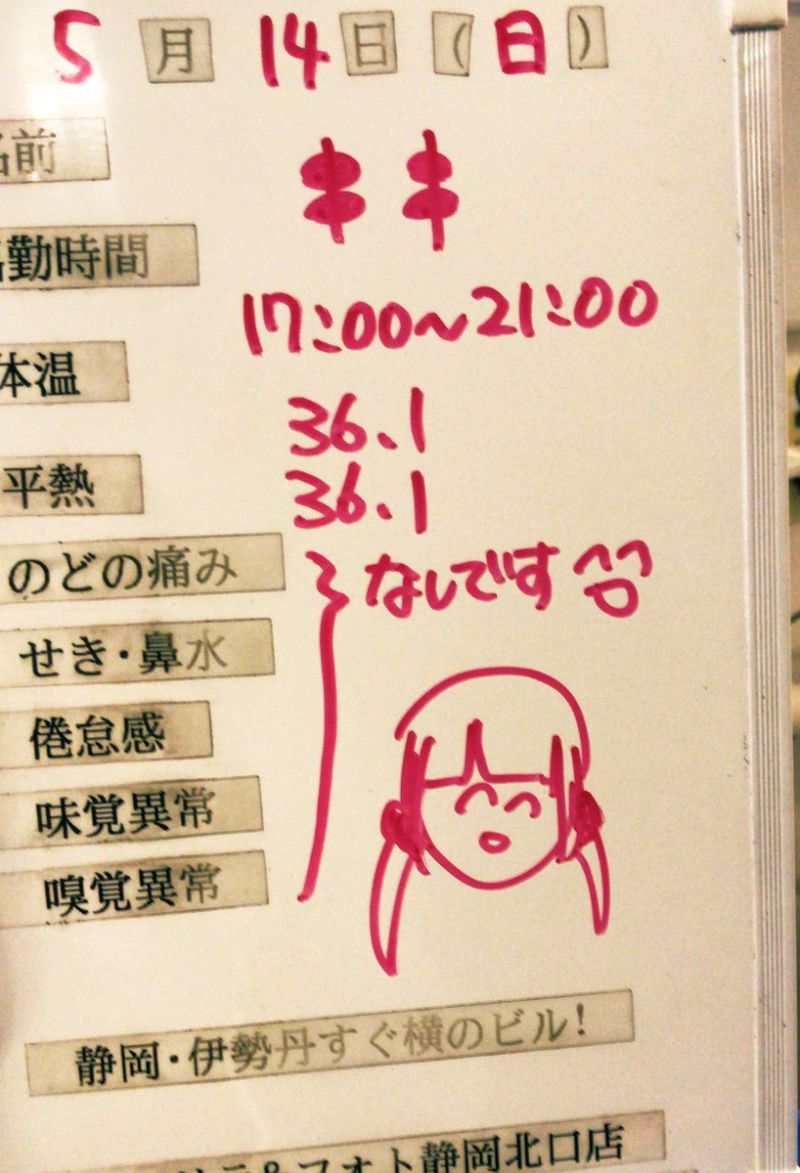 5月14日(日)
名前 串串
出勤時間 17:00~21:00
体温 36.1
平熱 36.1
のどの痛み なしです
せき・鼻水
倦怠感
味覚異常
嗅覚異常
静岡・伊勢丹すぐ横のビル!
&フォト静岡北口店